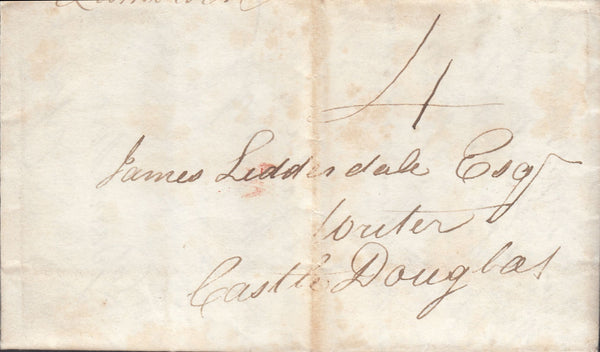 4
James Lidderdale Esqr
Writer
Castle Douglas